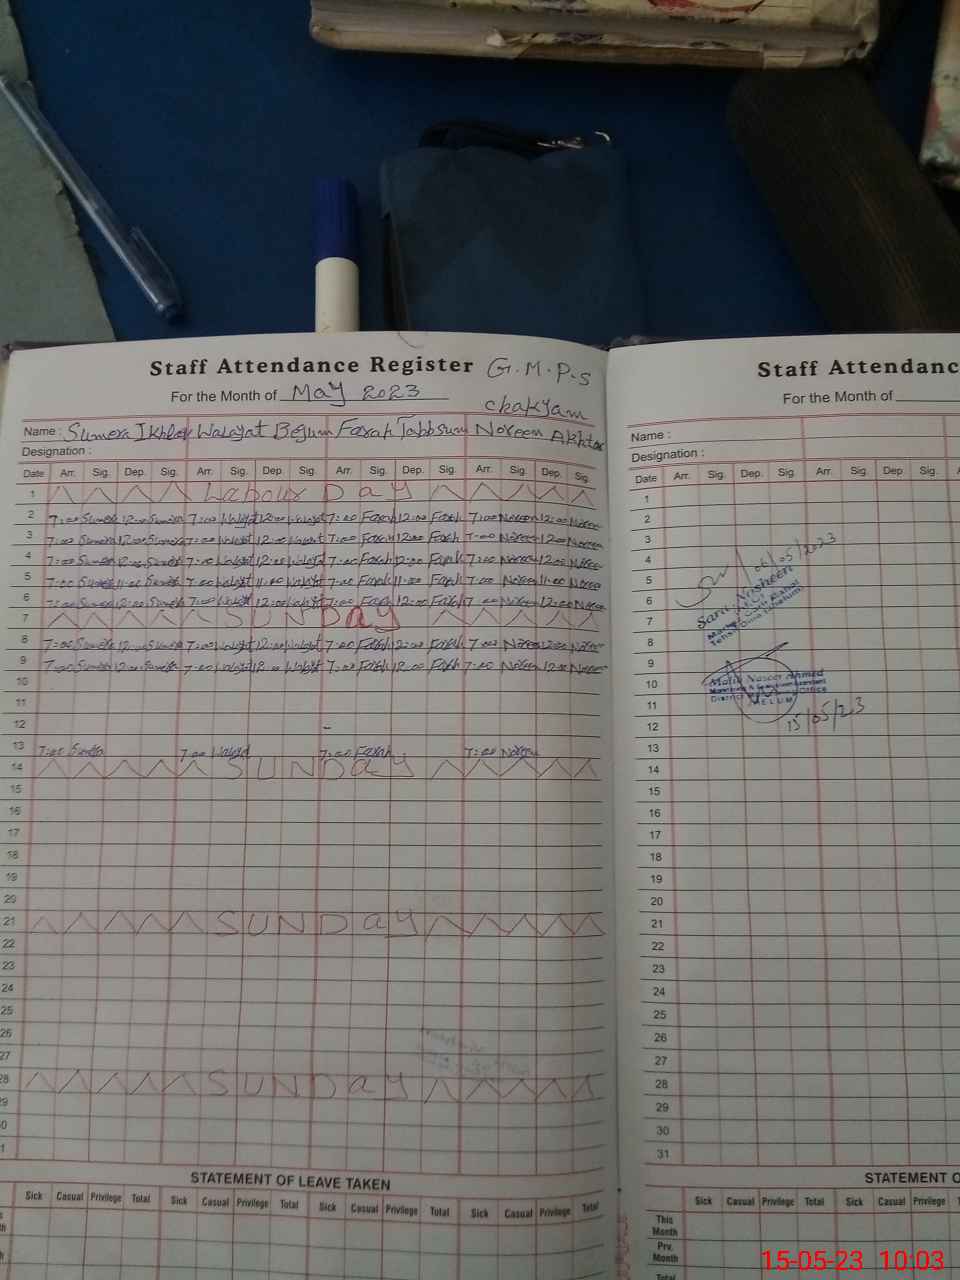 Staff Attendance Register G.M.P.S
For the Month of May 2023 chakyam
Name : Sumera Ikhlaq Walayat Begum Farah Tabbsum Noreen Akhtar
Designation :
Date Arr. Sig. Dep. Sig. Arr. Sig. Dep. Sig. Arr. Sig. Dep. Sig. Arr. Sig. Dep. Sig.
1 Labour Day
2 7:00 Sumera 12:00 Sumera 7:00 Walayt 12:00 Walayt 7:00 Farah 12:00 Farah 7:00 Noreen 12:00 Noreen
3 7:00 Sumera 12:00 Sumera 7:00 Walayt 12:00 Walayt 7:00 Farah 12:00 Farah 7:00 Noreen 12:00 Noreen
4 7:00 Sumera 12:00 Sumera 7:00 Walayt 12:00 Walayt 7:00 Farah 12:00 Farah 7:00 Noreen 12:00 Noreen
5 7:00 Sumera 11:00 Sumera 7:00 Walayt 11:00 Walayt 7:00 Farah 11:00 Farah 7:00 Noreen 11:00 Noreen
6 7:00 Sumera 12:00 Sumera 7:00 Walayt 12:00 Walayt 7:00 Farah 12:00 Farah 7:00 Noreen 12:00 Noreen
7 SUNDAY
8 7:00 Sumera 12:00 Sumera 7:00 Walayt 12:00 Walayt 7:00 Farah 12:00 Farah 7:00 Noreen 12:00 Noreen
9 7:00 Sumera 12:00 Sumera 7:00 Walayt 12:00 Walayt 7:00 Farah 12:00 Farah 7:00 Noreen 12:00 Noreen
10
11
12 -
13 7:00 Sumera 7:00 Walayt 7:00 Farah 7:00 Noreen
14 SUNDAY
15
16
17
18
19
20
21 SUNDAY
22
23
24
25
26
27
28 SUNDAY
29
0
1
STATEMENT OF LEAVE TAKEN
Sick Casual Privilege Total Sick Casual Privilege Total Sick Casual Privilege Total Sick Casual Privilege Total
Staff Attendanc
For the Month of
Name :
Designation :
Date Arr. Sig. Dep. Sig. Arr. Sig. Dep. Sig.
1
2
3
4 06/05/2023
5 Sara Nosheen
6
7
8
9
10 Malik Naseer Ahmed
11 JHELUM
12 15/05/23
13
14
15
16
17
18
19
20
21
22
23
24
25
26
27
28
29
30
31
STATEMENT O
Sick Casual Privilege Total Sick Casual Privilege
This
Month
Prv.
Month
Total
15-05-23 10:03